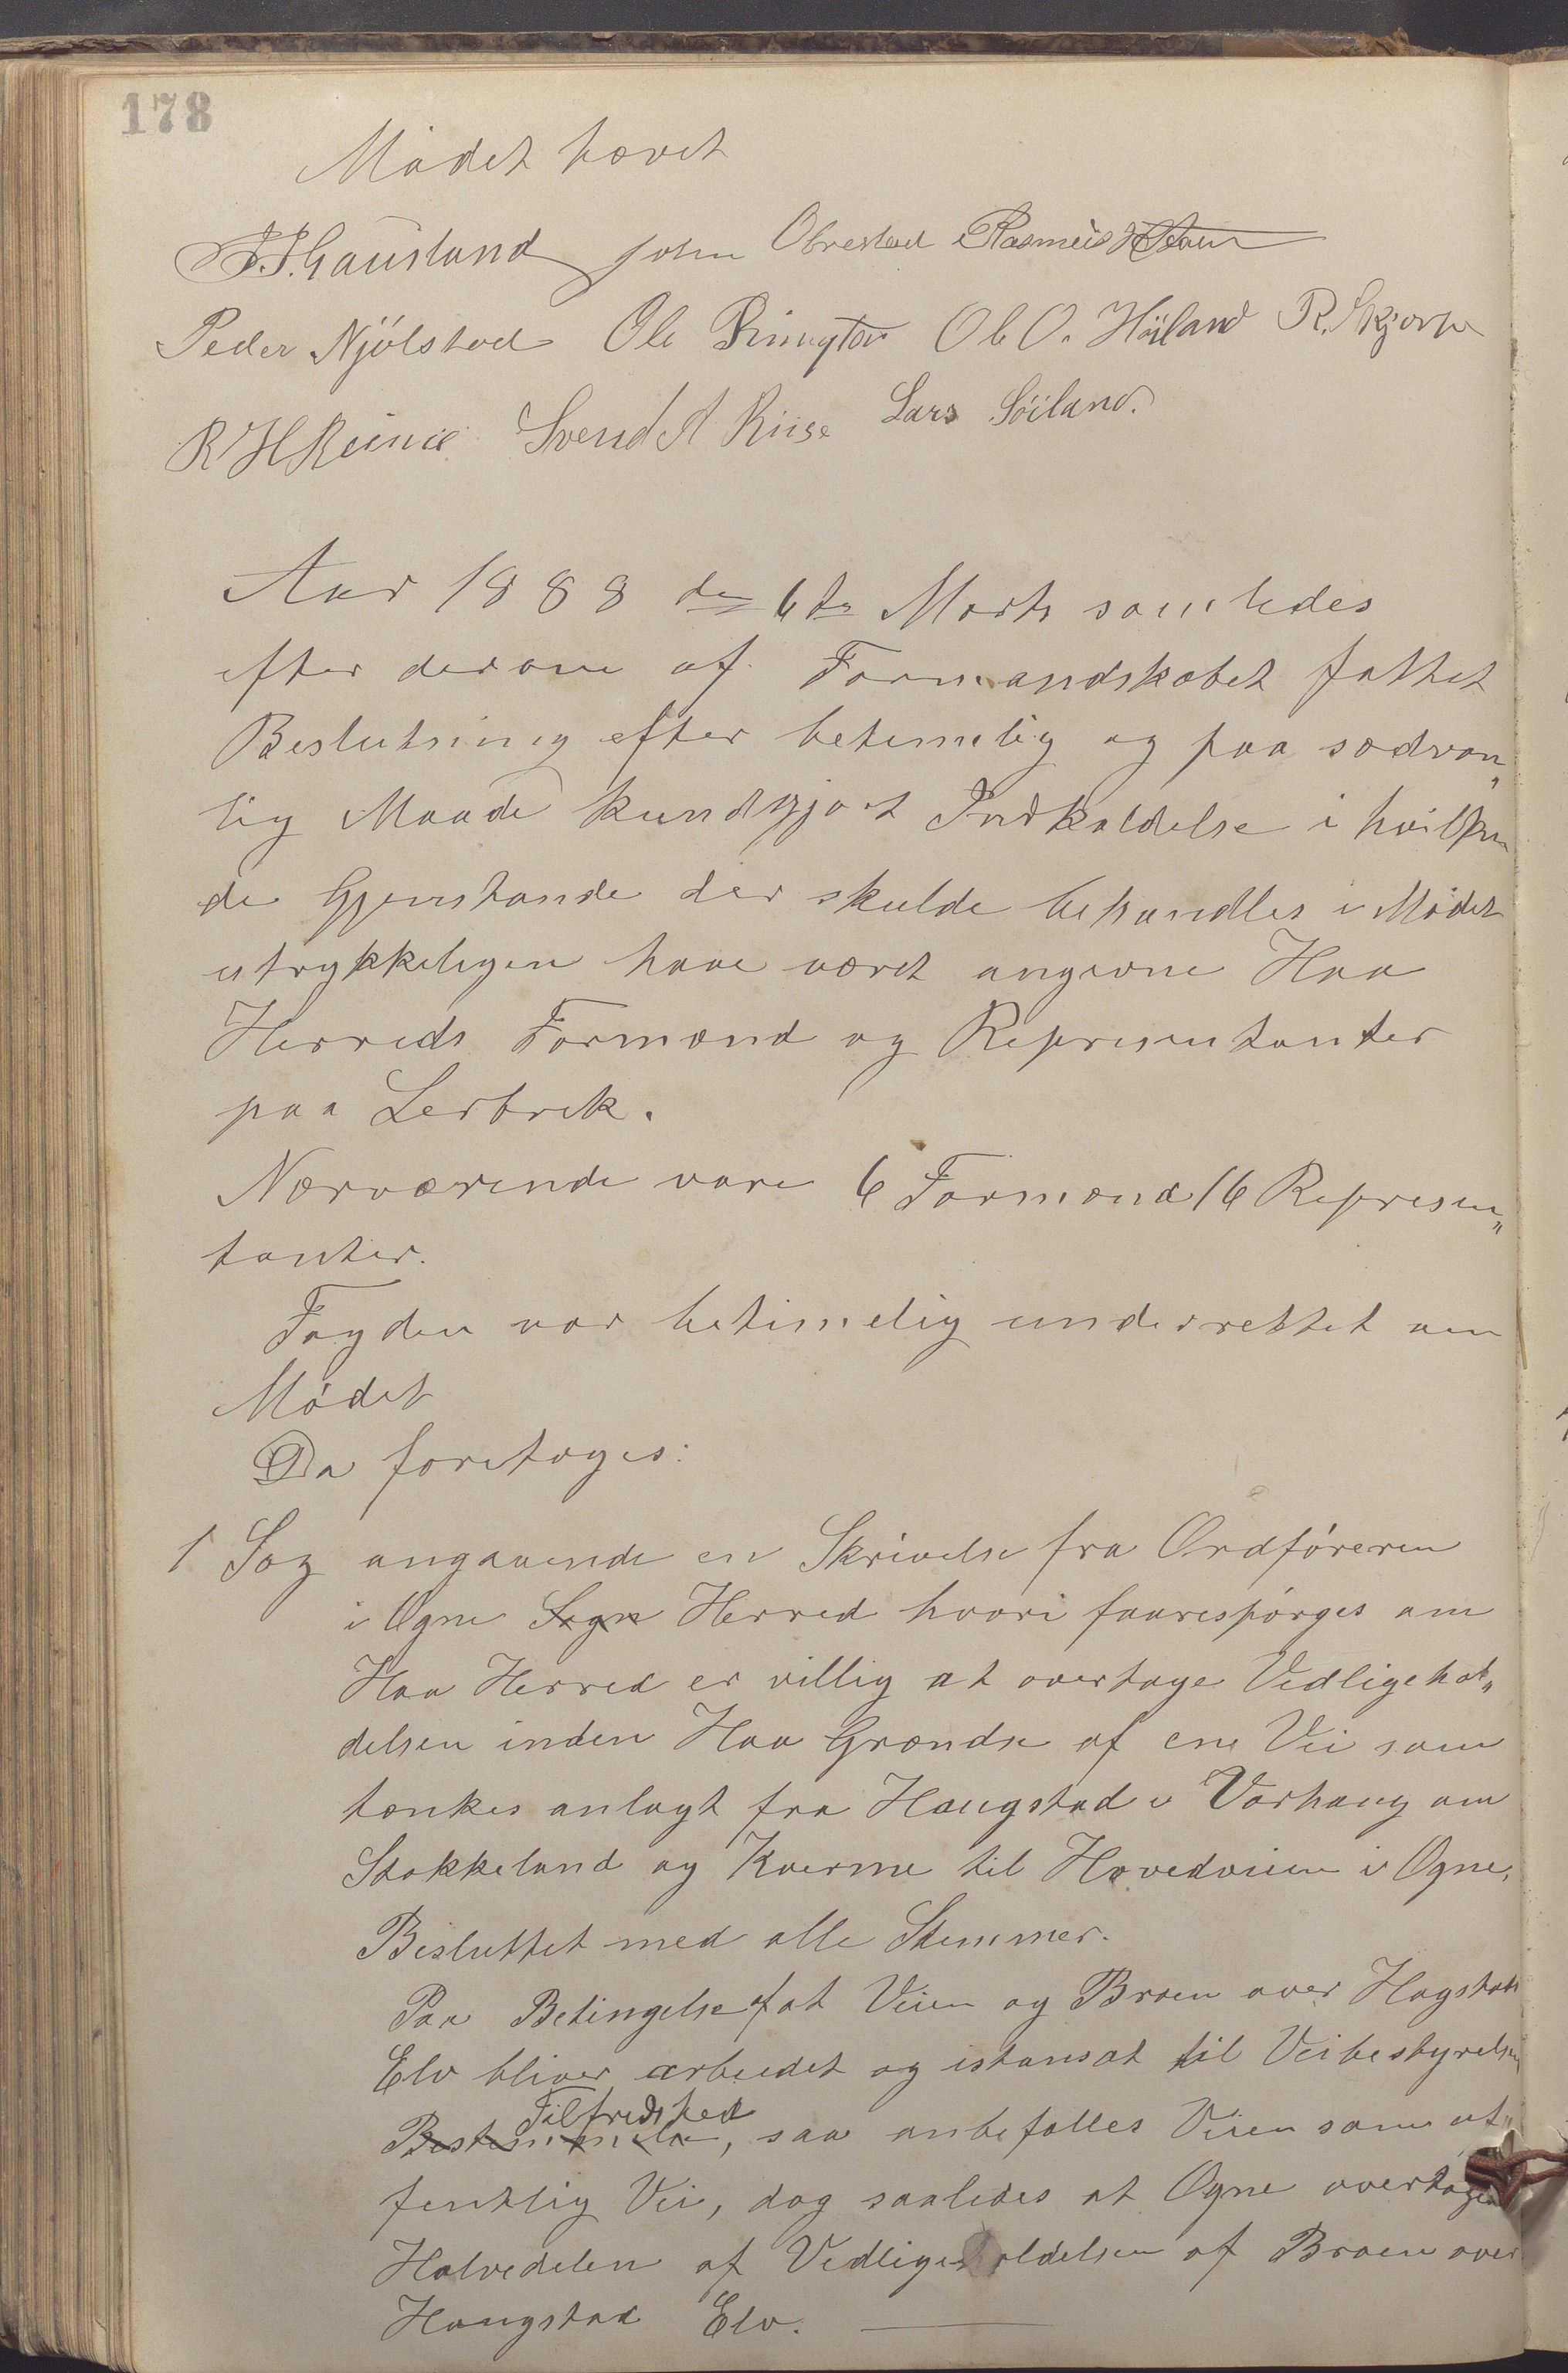 178
Mødet hævet
J. J. Gausland John Obrestad Rasmus
Peder Njólstad Ole Ole O. Höiland R. Skjærp
R H Reime Svend A Riise Lars Söiland.
Aar 1888 den 6te Marts samledes
efter derom af Formandskabet fattet
Beslutning efter betimelig og paa sædvan„
lig Maade kundgjort Indkaldelse i hvilken
de Gjenstande der skulde behandles i Mødet
utrykkeligen have været angivne Haa
Herreds Formænd og Representanter
paa Lerbrek.
Nærværende vare 6 Formænd 16 Represen„
tanter.
Fogden var betimelig underrettet om
Mødet
Da foretoges:
1 Sag angaaende en Skrivelse fra Ordføreren
i Ogne Sogn Herred hvori foorespørges om
Haa Herred er villig at overtage Vedligehol„
delsen inden Haa Grændse af en Vei som
tænkes anlagt fra Haugstad i Varhaug om
Stokkeland og Kverme til Hovedveien i Ogne,
Besluttet med alle Stemmer.
Paa Betingelse af at Veien og Broen over Hagstad
Elv bliver arbeidet og istansat til Veibestyrelsens
Tilfredshed
, saa anbefalles Veien som of„
fentlig Vei, dog saaledes at Ogne overtager
Halvedelen af Vedligeholdelsen af Broen over
Haugstad Elv.